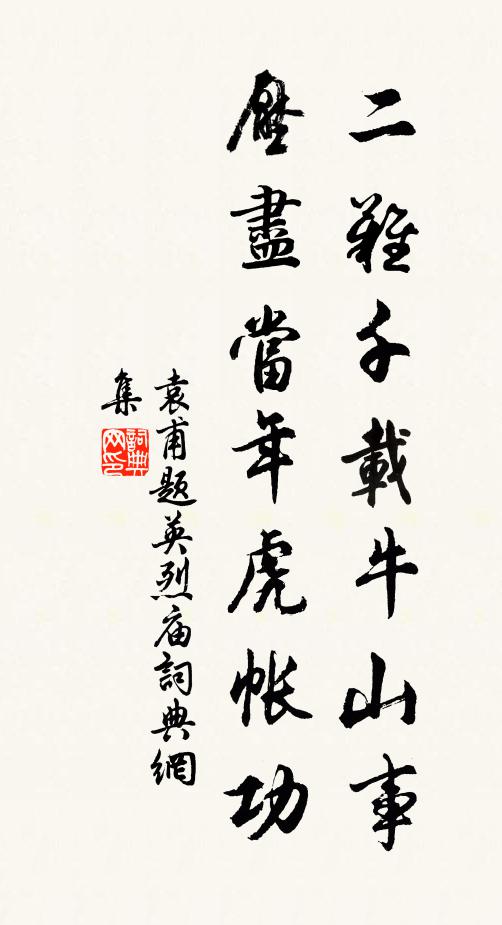 二難千載牛山事
壓盡當年虎帳功
袁甫題英烈庙詞典網
集
詞典網印